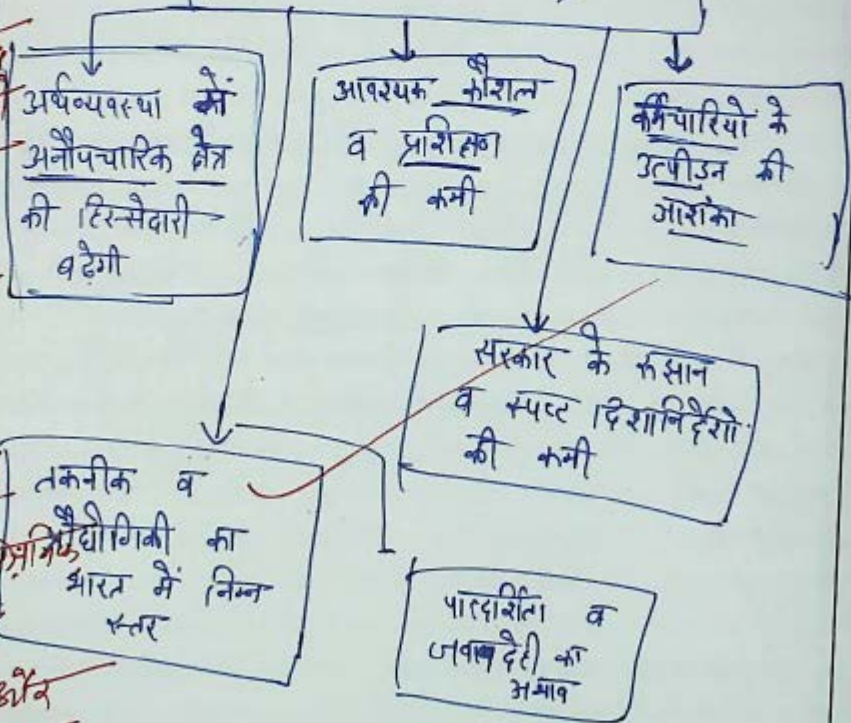 अर्थव्यवस्था में
अनौपचारिक क्षेत्र
की हिस्सेदारी
बढ़ेगी
आवश्यक कौशल
व प्रशिक्षण
की कमी
कर्मचारियों के
उत्पीडन की
आशंका
सरकार के रुझान
व स्पष्ट दिशानिर्देशो
की कमी
तकनीक व
प्रौद्योगिकी का
भारत में निम्न
स्तर
पारदर्शिता व
जवाबदेही का
अभाव
और